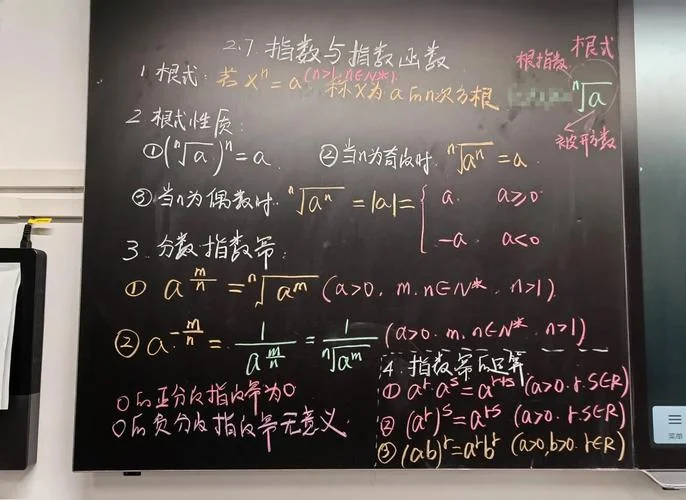 2.7. 指数与指数函数
1 根式: 若 xⁿ = a (n>1, n∈N*). 称x为a的n次方根
根指数 根式
ⁿ√a
被开方数
2 根式性质:
① (ⁿ√a)ⁿ = a ② 当n为奇数时. ⁿ√aⁿ = a.
③ 当n为偶数时. ⁿ√aⁿ = |a| = { a. a≥0
-a a<0
3. 分数指数幂:
① a^(m/n) = ⁿ√a^m (a>0, m.n∈N*, n>1).
② a^(-m/n) = 1/a^(m/n) = 1/ⁿ√a^m (a>0. m,n∈N*. n>1)
0的正分数指数幂为0
0的负分数指数幂无意义.
4. 指数幂的运算
① a^r·a^s = a^(r+s) (a>0. r.s∈R)
② (a^r)^s = a^(rs) (a>0. r.s∈R)
③ (ab)^r = a^r b^r (a>0,b>0. r∈R)
菜单